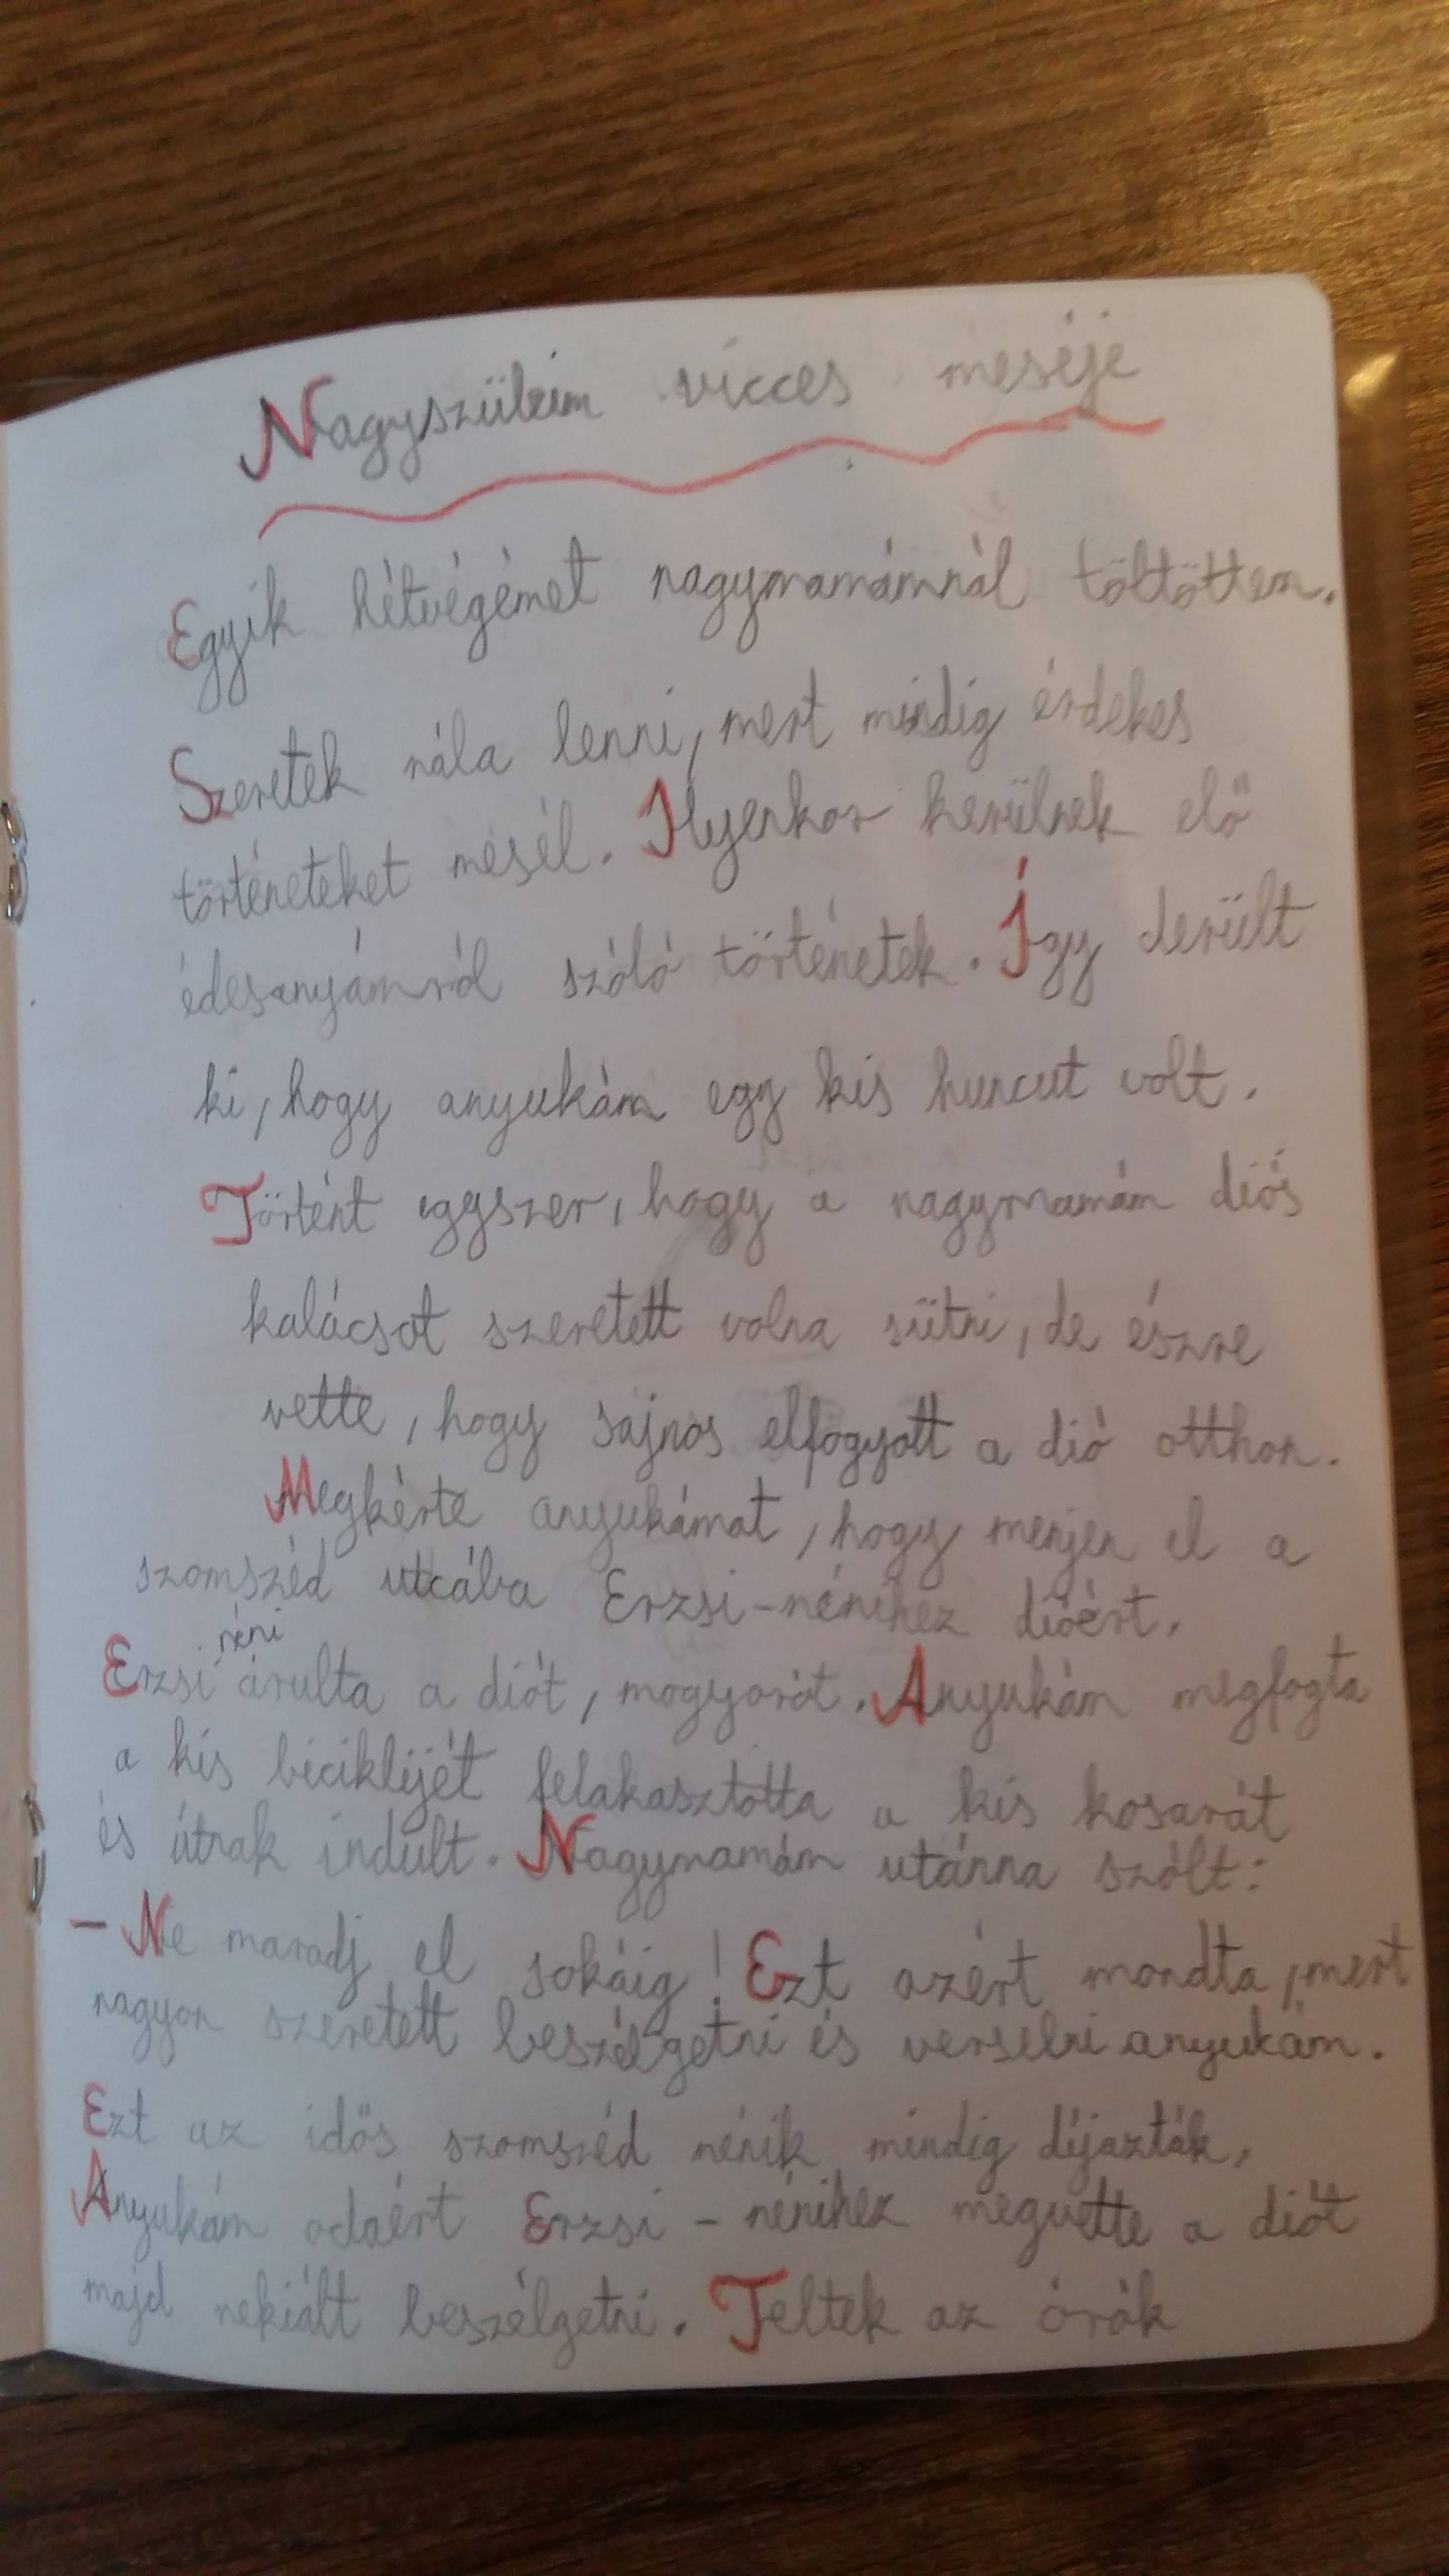 Nagyszüleim vicces meséje
Egyik hétvégémet nagymamámnál töltöttem.
Szeretek nála lenni, mert mindig érdekes
történeteket mesél. Ilyenkor kerülnek elő
édesanyámról szóló történetek. Így derült
ki, hogy anyukám egy kis huncut volt.
Történt egyszer, hogy a nagymamám diós
kalácsot szeretett volna sütni, de észre
vette, hogy sajnos elfogyott a dió otthon.
Megkérte anyukámat, hogy menjen el a
szomszéd utcába Erzsi-nénihez dióért.
néni
Erzsi árulta a diót, mogyorót. Anyukám megfogta
a kis biciklijét felakasztotta a kis kosarát
és útrak indult. Nagymamám utánna szólt:
- Ne maradj el sokáig! Ezt azért mondta, mert
nagyon szeretett beszélgetni és verselni anyukám.
Ezt az idős szomszéd nénik mindig díjazták.
Anyukám odaért Erzsi - nénihez megvette a diót
majd nekiált beszélgetni. Teltek az órák